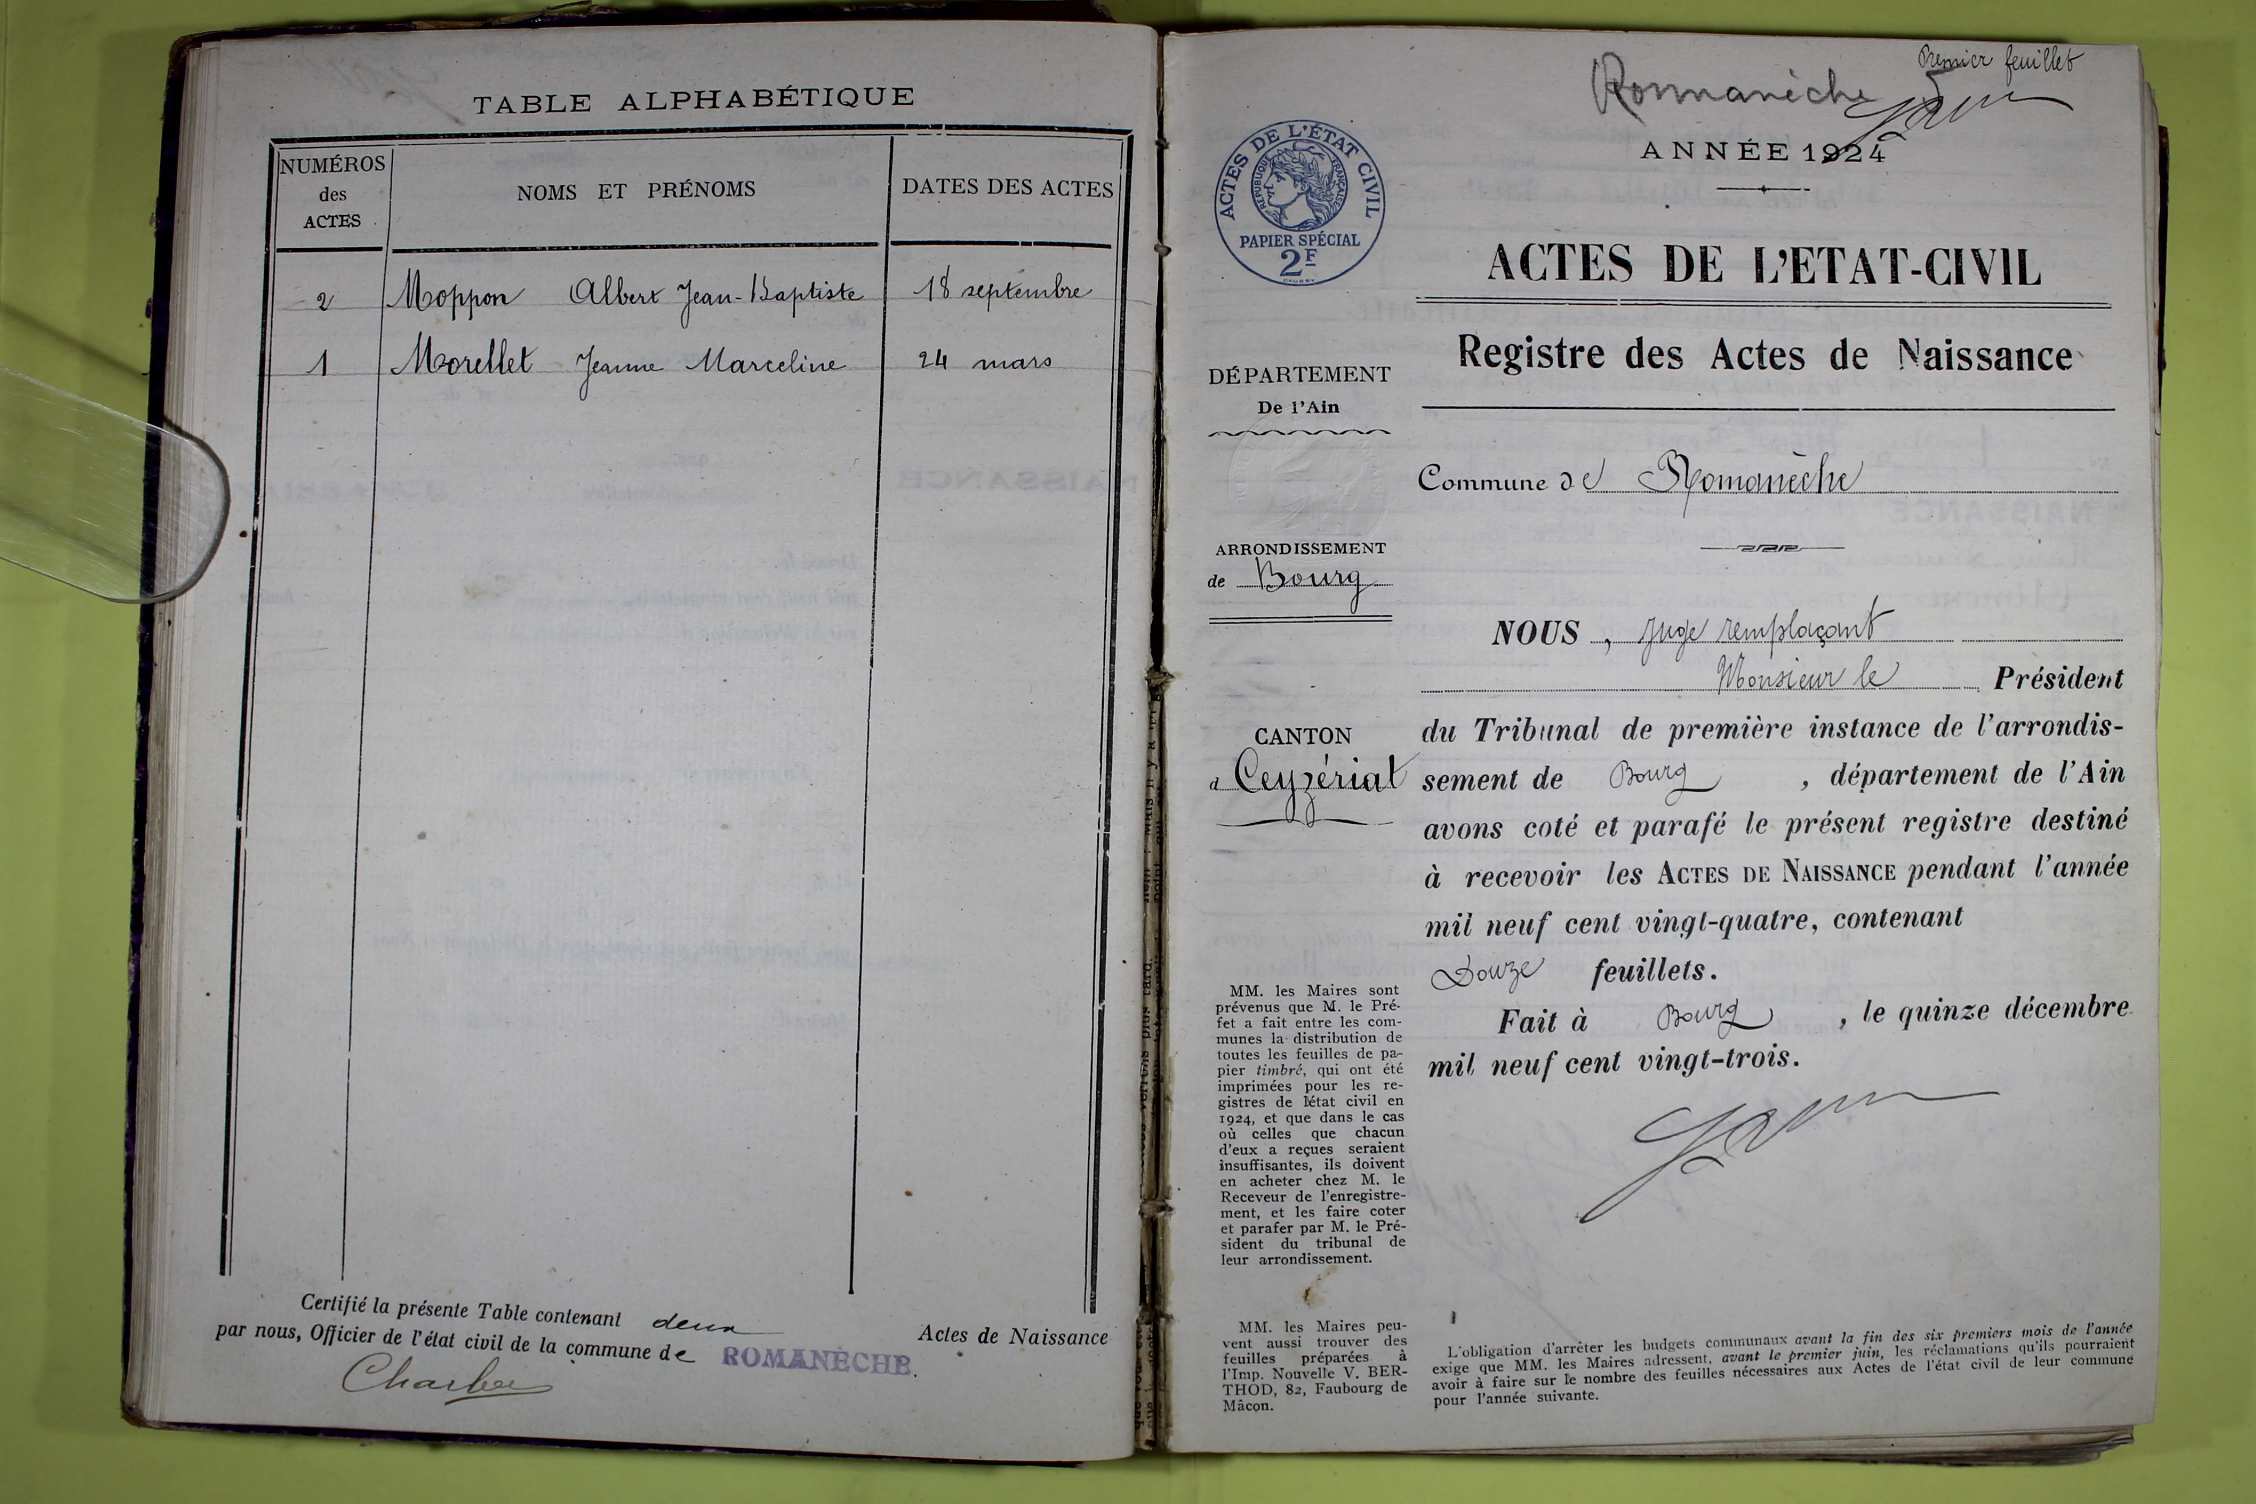 TABLE ALPHABÉTIQUE
NUMÉROS
des
ACTES
NOMS ET PRÉNOMS
DATES DES ACTES
2 Moppon Albert Jean-Baptiste 18 septembre
1 Morellet Jeanne Marceline 24 mars
Certifié la présente Table contenant deux Actes de Naissance
par nous, Officier de l'état civil de la commune de ROMANÈCHE.
Premier feuillet
Romanèche
ANNÉE 1924
ACTES DE L'ÉTAT CIVIL
RÉPUBLIQUE FRANÇAISE
PAPIER SPÉCIAL
2F
ACTES DE L'ETAT-CIVIL
Registre des Actes de Naissance
DÉPARTEMENT
De l'Ain
Commune de Romanèche
ARRONDISSEMENT
de Bourg
CANTON
d Ceyzériat
NOUS, Juge remplaçant
Monsieur le Président
du Tribunal de première instance de l'arrondis-
sement de Bourg, département de l'Ain
avons coté et parafé le présent registre destiné
à recevoir les ACTES DE NAISSANCE pendant l'année
mil neuf cent vingt-quatre, contenant
Douze feuillets.
Fait à Bourg, le quinze décembre
mil neuf cent vingt-trois.
MM. les Maires sont
prévenus que M. le Pré-
fet a fait entre les com-
munes la distribution de
toutes les feuilles de pa-
pier timbré, qui ont été
imprimées pour les re-
gistres de l'état civil en
1924, et que dans le cas
où celles que chacun
d'eux a reçues seraient
insuffisantes, ils doivent
en acheter chez M. le
Receveur de l'enregistre-
ment, et les faire coter
et parafer par M. le Pré-
sident du tribunal de
leur arrondissement.
MM. les Maires peu-
vent aussi trouver des
feuilles préparées à
l'Imp. Nouvelle V. BER-
THOD, 82, Faubourg de
Mâcon.
L'obligation d'arrêter les budgets communaux avant la fin des six premiers mois de l'année
exige que MM. les Maires adressent, avant le premier juin, les réclamations qu'ils pourraient
avoir à faire sur le nombre des feuilles nécessaires aux Actes de l'état civil de leur commune
pour l'année suivante.